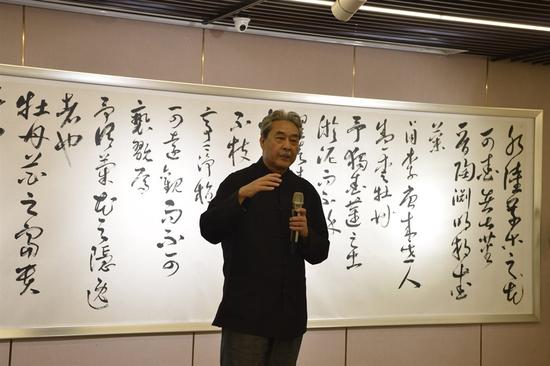 水陸草木之花
可愛者甚蕃
晉陶淵明獨愛
菊
自李唐來世人
愛牡丹
予獨愛蓮之出
淤泥而不染
不枝
亭亭淨植
可遠觀而不可
褻翫焉
予謂菊花之隱逸
者也
牡丹花之富貴